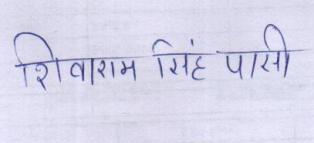 शिवाराम सिंह पासी